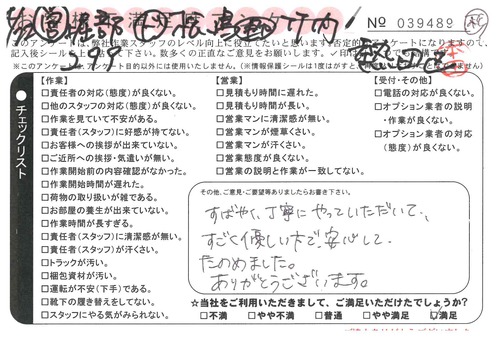 No 039489
このアンケートは、弊社作業スタッフのレベル向上に役立てたいと思います。否定的
記入後シールを上から貼って
です。数多くの正直なご意見をお願い致します。
※このアンケートは、アンケート目的以外には使用いたしません。(※情報保護シールは1度はがすと、
チェックリスト
【作業】
□責任者の対応(態度)が良くない。
□他のスタッフの対応(態度)が良くない。
□作業を見ていて不安がある。
□責任者(スタッフ)に好感が持てない。
□お客様への挨拶が出来ていない。
□ご近所への挨拶・気遣いが無い。
□作業開始前の内容確認がなかった。
□作業開始時間が遅れた。
□荷物の取り扱いが雑である。
□お部屋の養生が出来ていない。
□作業時間が長すぎる。
□責任者(スタッフ)に清潔感が無い。
□責任者(スタッフ)が汗くさい。
□トラックが汚い。
□梱包資材が汚い。
□運転が不安(下手)である。
□靴下の履き替えをしてない。
□スタッフにやる気がみられない。
【営業】
□見積もり時間に遅れた。
□見積もり時間が長い。
□営業マンに清潔感が無い。
□営業マンが煙草くさい。
□営業マンが汗くさい。
□営業態度が良くない。
□営業の説明と作業が一致してない。
【受付・その他】
□電話の対応が良くない。
□オプション業者の説明
・作業が良くない。
□オプション業者の対応
(態度)が良くない。
その他、ご意見・ご要望等ありましたらお書き下さい。
すばやく、丁寧にやっていただいて、
すごく優しい方で、安心して
たのめました。
ありがとうございます。
☆当社をご利用いただきまして、ご満足いただけたでしょうか?
□不満 □やや不満 □普通 □やや満足 ☑満足